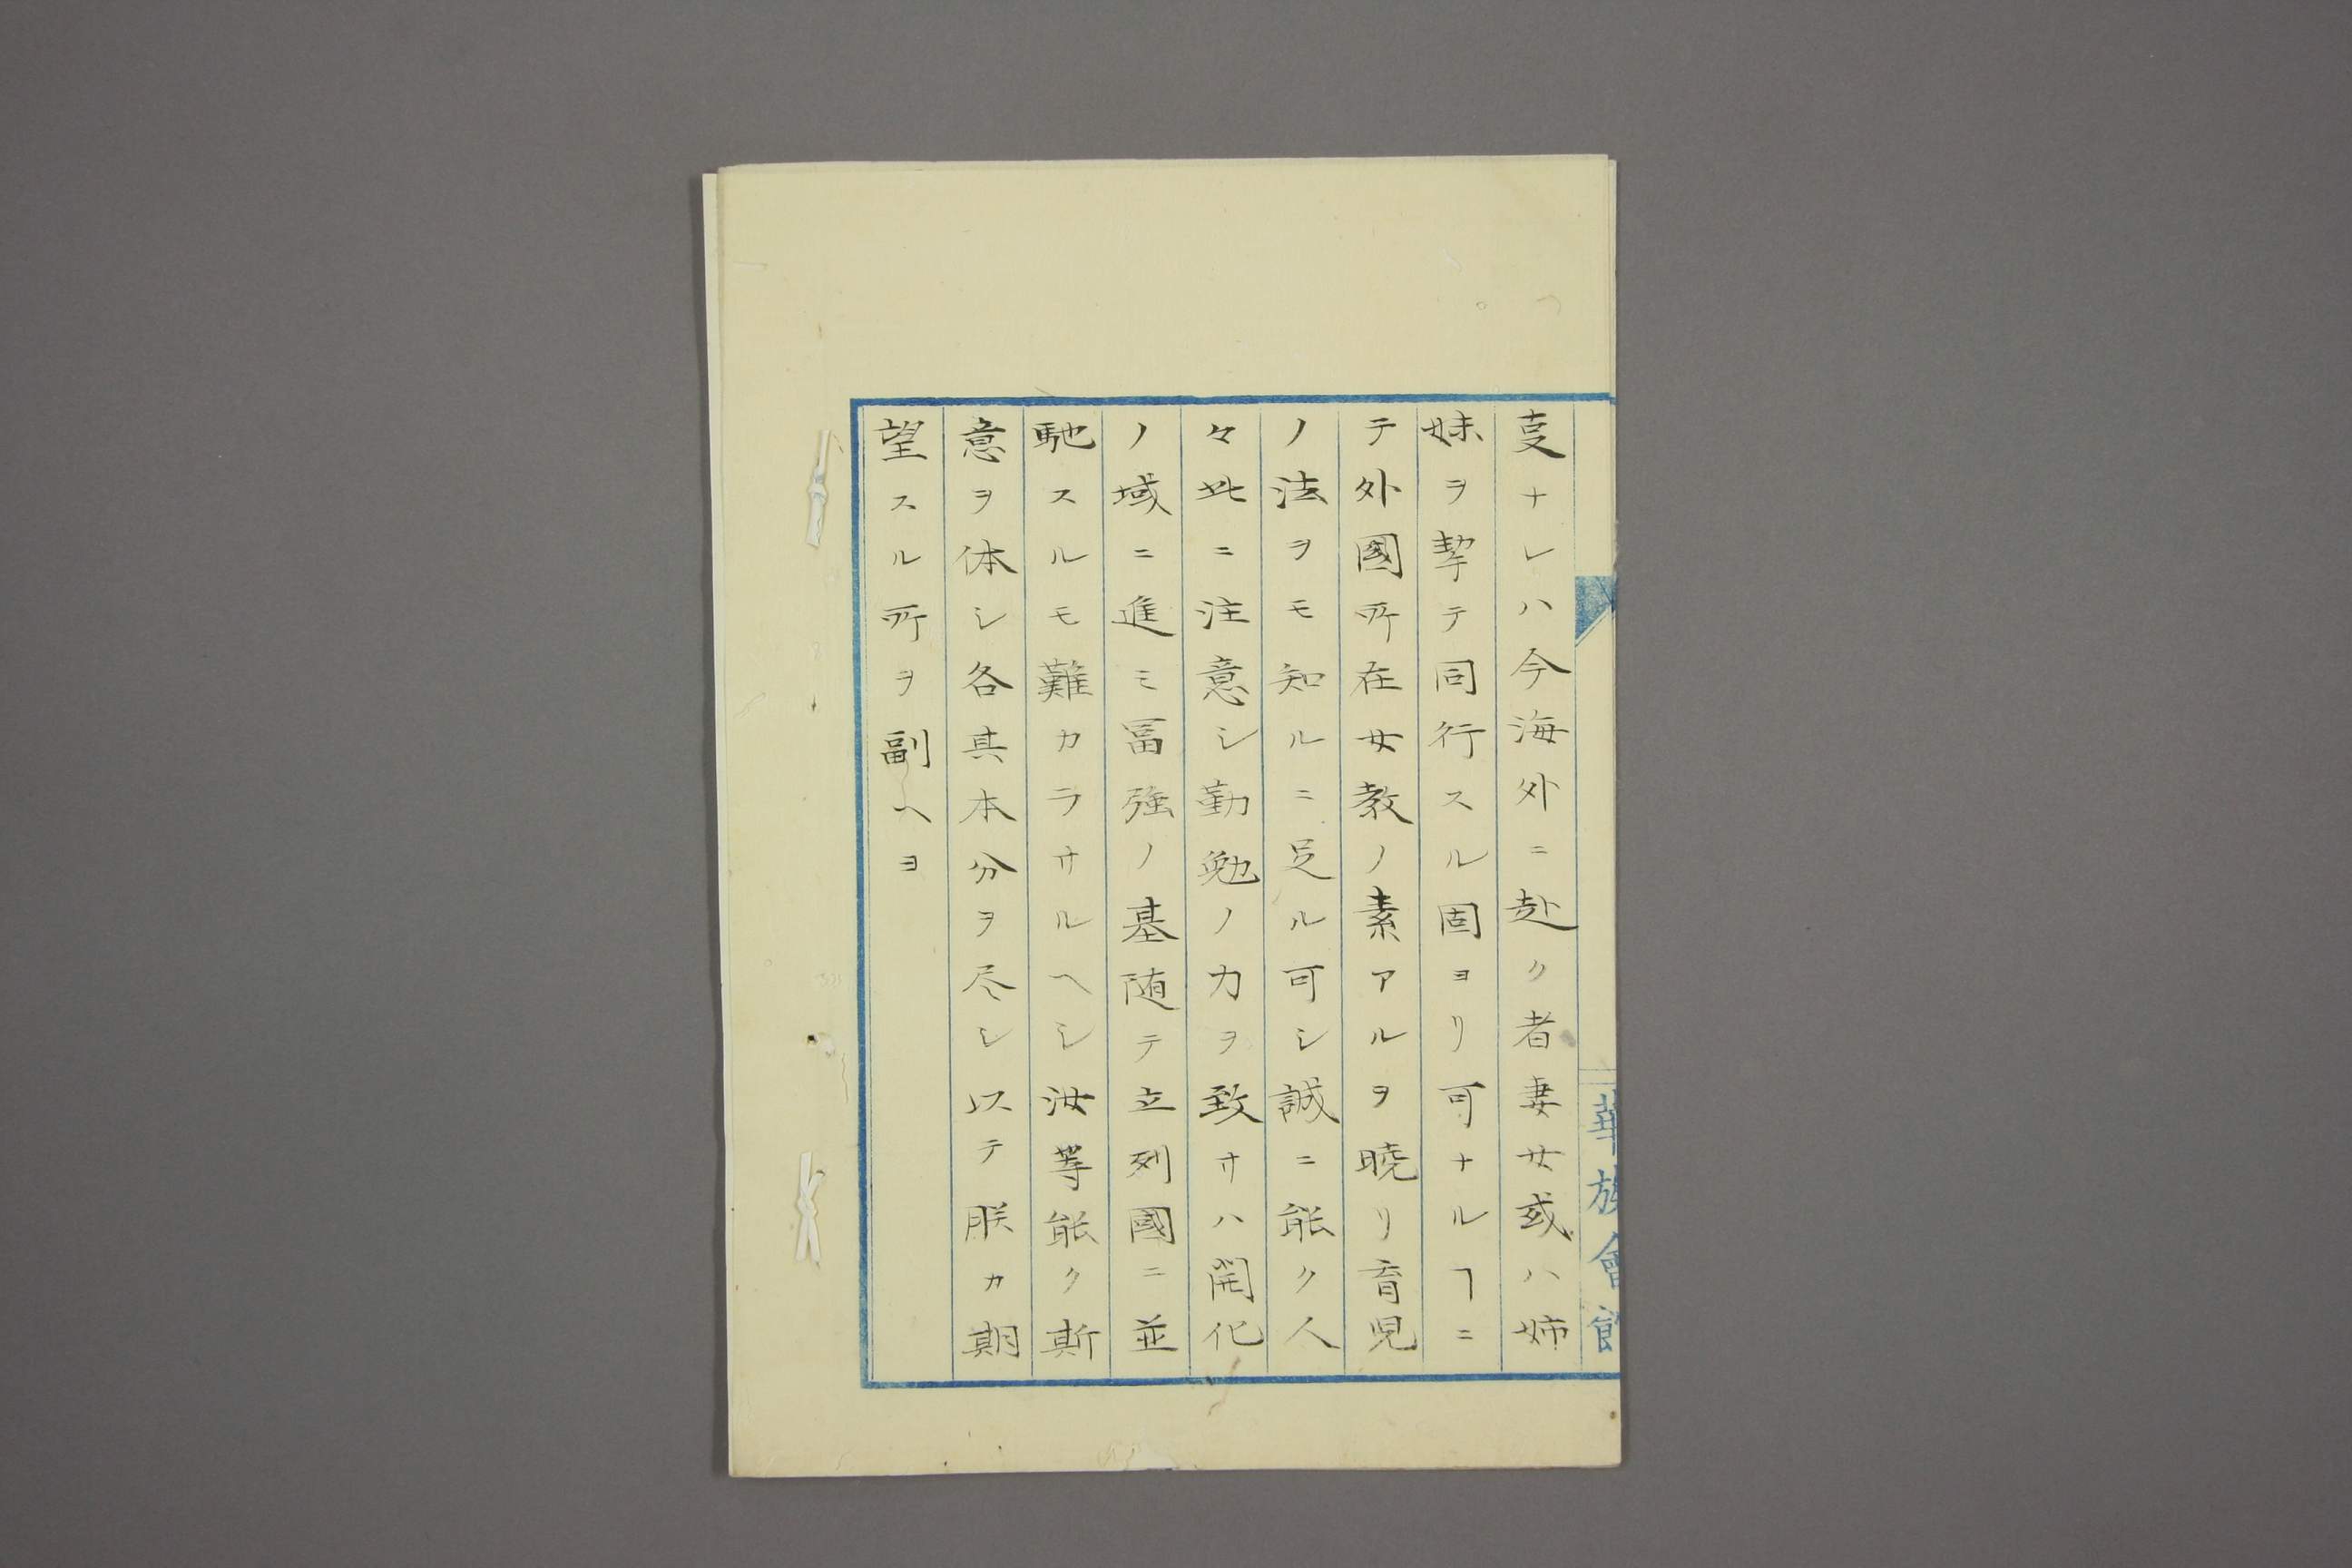 華族會館
叓ナレハ今海外ニ赴ク者妻女或ハ姉
妹ヲ挈テ同行スル固ヨリ可ナルヿニ
テ外國所在女教ノ素アルヲ曉リ育児
ノ法ヲモ知ルニ足ル可シ誠ニ能ク人
々此ニ注意シ勤勉ノ力ヲ致サハ開化
ノ域ニ進ミ冨強ノ基随テ立列國ニ並
馳スルモ難カラサルヘシ汝等能ク斯
意ヲ体シ各其本分ヲ尽シ以テ朕カ期
望スル所ヲ副ヘヨ